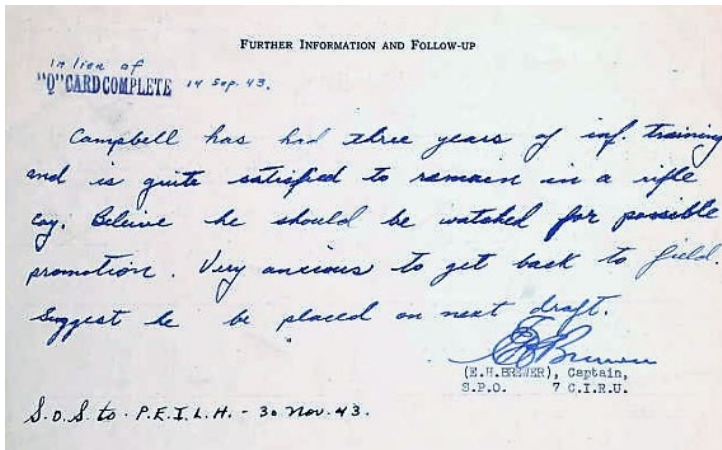 FURTHER INFORMATION AND FOLLOW-UP
in lieu of
"Q" CARD COMPLETE 14 Sep. 43.
Campbell has had three years of inf. training
and is quite satisfied to remain in a rifle
coy. Beleive he should be watched for possible
promotion. Very ancious to get back to field.
Suggest he be placed on next draft.
EHBrewer
(E.H.BREWER), Captain,
S.P.O. 7 C.I.R.U.
S.O.S to. P.E.I.L.H. - 30 Nov. 43.